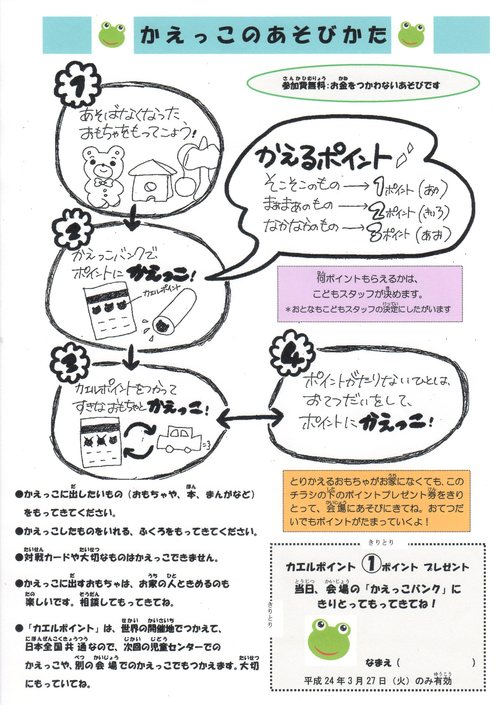 かえっこのあそびかた
参加費無料：お金をつかわないあそびです
1
あそばなくなった
おもちゃをもってこよう！
かえるポイント
そこそこのもの→1ポイント(あか)
まあまあのもの→2ポイント(きいろ)
なかなかのもの→3ポイント(あお)
2
かえっこバンクで
ポイントにかえっこ！
カエルポイント
何ポイントもらえるかは、
こどもスタッフが決めます。
＊おとなもこどもスタッフの決定にしたがいます
3
カエルポイントをつかって
すきなおもちゃとかえっこ！
4
ポイントがたりないひとは、
おてつだいをして、
ポイントにかえっこ！
とりかえるおもちゃがお家になくても、この
チラシの下のポイントプレゼント券をきり
とって、会場にあそびにきてね。おてつだ
いでもポイントがたまっていくよ！
●かえっこに出したいもの（おもちゃや、本、まんがなど）
をもってきてください。
●かえっこしたものをいれる、ふくろをもってきてください。
●対戦カードや大切なものはかえっこできません。
●かえっこに出すおもちゃは、お家の人ときめるのも
楽しいです。相談してもってきてね。
●「カエルポイント」は、世界の開催地でつかえて、
日本全国共通なので、次回の児童センターでの
かえっこや、別の会場でのかえっこでもつかえます。大切
にもっていてね。
きりとり
きりとり
カエルポイント①ポイントプレゼント
当日、会場の「かえっこバンク」に
きりとってもってきてね！
なまえ（　　　　）
平成24年3月27日（火）のみ有効